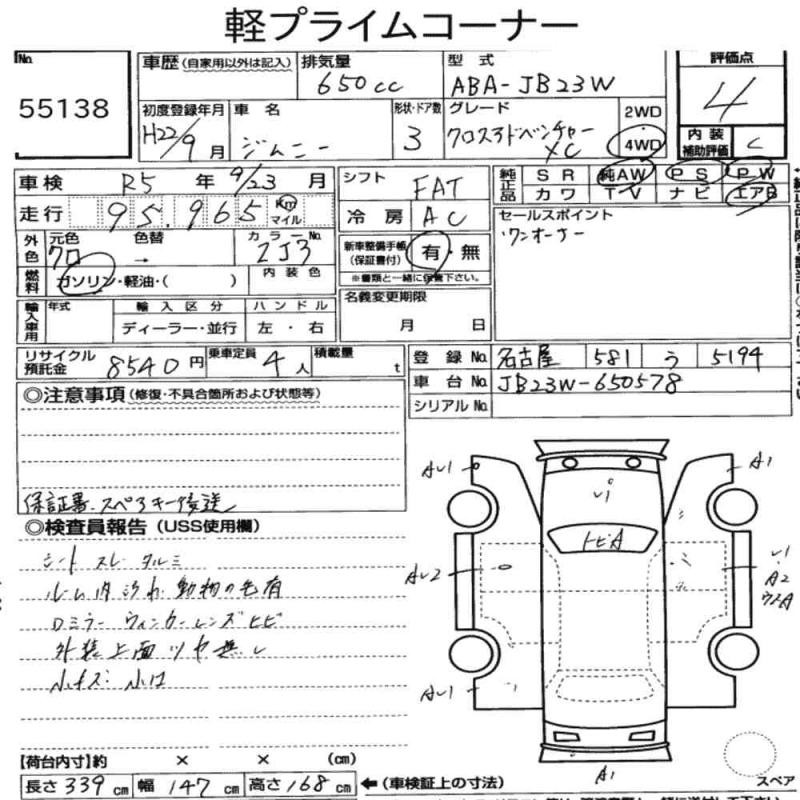 軽プライムコーナー
No.
55138
車歴 (自家用以外は記入)
排気量
650cc
型式
ABA-JB23W
評価点
4
初度登録年月
H22/9月
車名
ジムニー
形状・ドア数
3
グレード
クロスアドベンチャー
XC
2WD
4WD
内装
補助評価
C
車検 R5年 9/23月
走行 95,965 Km マイル
外色 元色 クロ 色替 → カラーNo. ZJ3
燃料 ガソリン・軽油・( ) 内装色
輸入車用 年式 輸入区分 ハンドル
ディーラー・並行 左・右
シフト FAT
冷房 AC
新車整備手帳
(保証書付)
有・無
※書類と一緒に保管下さい。
名義変更期限
月 日
純正品 SR 純AW PS PW
カワ TV ナビ エアB
セールスポイント
ワンオーナー
リサイクル
預託金
8540円
乗車定員 4人
積載量 t
登録No. 名古屋 581 う 5194
車台No. JB23W-650578
シリアルNo.
◎注意事項 (修復・不具合箇所および状態等)
保証書、スペアキー後送
◎検査員報告 (USS使用欄)
シート スレ タルミ
ルーム内汚れ 動物の毛有
Dミラー ウィンカーレンズヒビ
外装上面ツヤ無し
小キズ・小凹
AU1
A1
U1
トビA
AU2
U1
A2
AU1
A1
スペア
【荷台内寸】約 × × (cm)
長さ 339 cm 幅 147 cm 高さ 168 cm ←(車検証上の寸法)